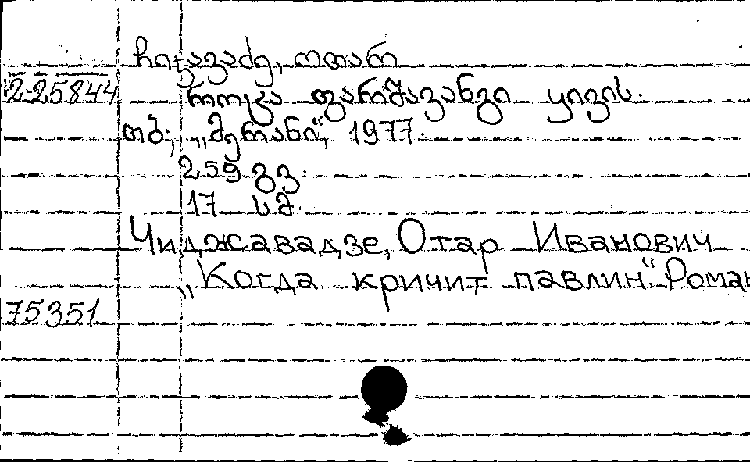 ჩიჯავაძე, ოთარი
225844
როცა ფარშავანგი ყივის.
თბ., „მერანი“, 1977.
259 გვ.
17 სმ.
Чиджавадзе, Отар Иванович
„Когда кричит павлин“ Роман
75351